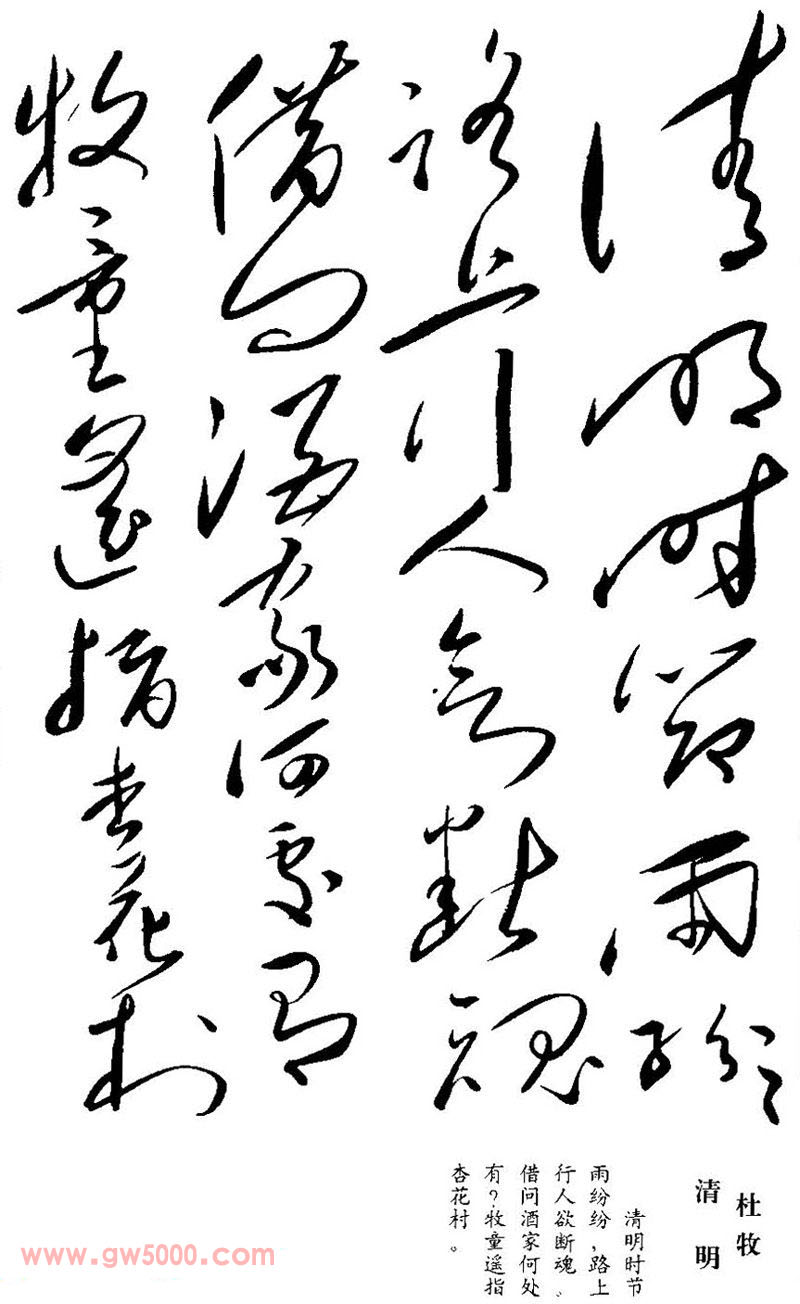 清明時節雨紛〻
路上行人欲斷魂
借問酒家何處有
牧童遙指杏花村
杜牧
清明
清明时节
雨纷纷，路上
行人欲断魂。
借问酒家何处
有？牧童遥指
杏花村。
www.gw5000.com